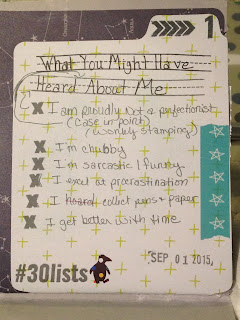 1
What You Might Have
Heard About Me
I am proudly Not a perfectionist
(case in point)
(wonky stamping)
I'm chubby
I'm sarcastic / funny
I excel at procrastination
I hoard collect pens + paper
I get better with time
SEP 01 2015
#30lists